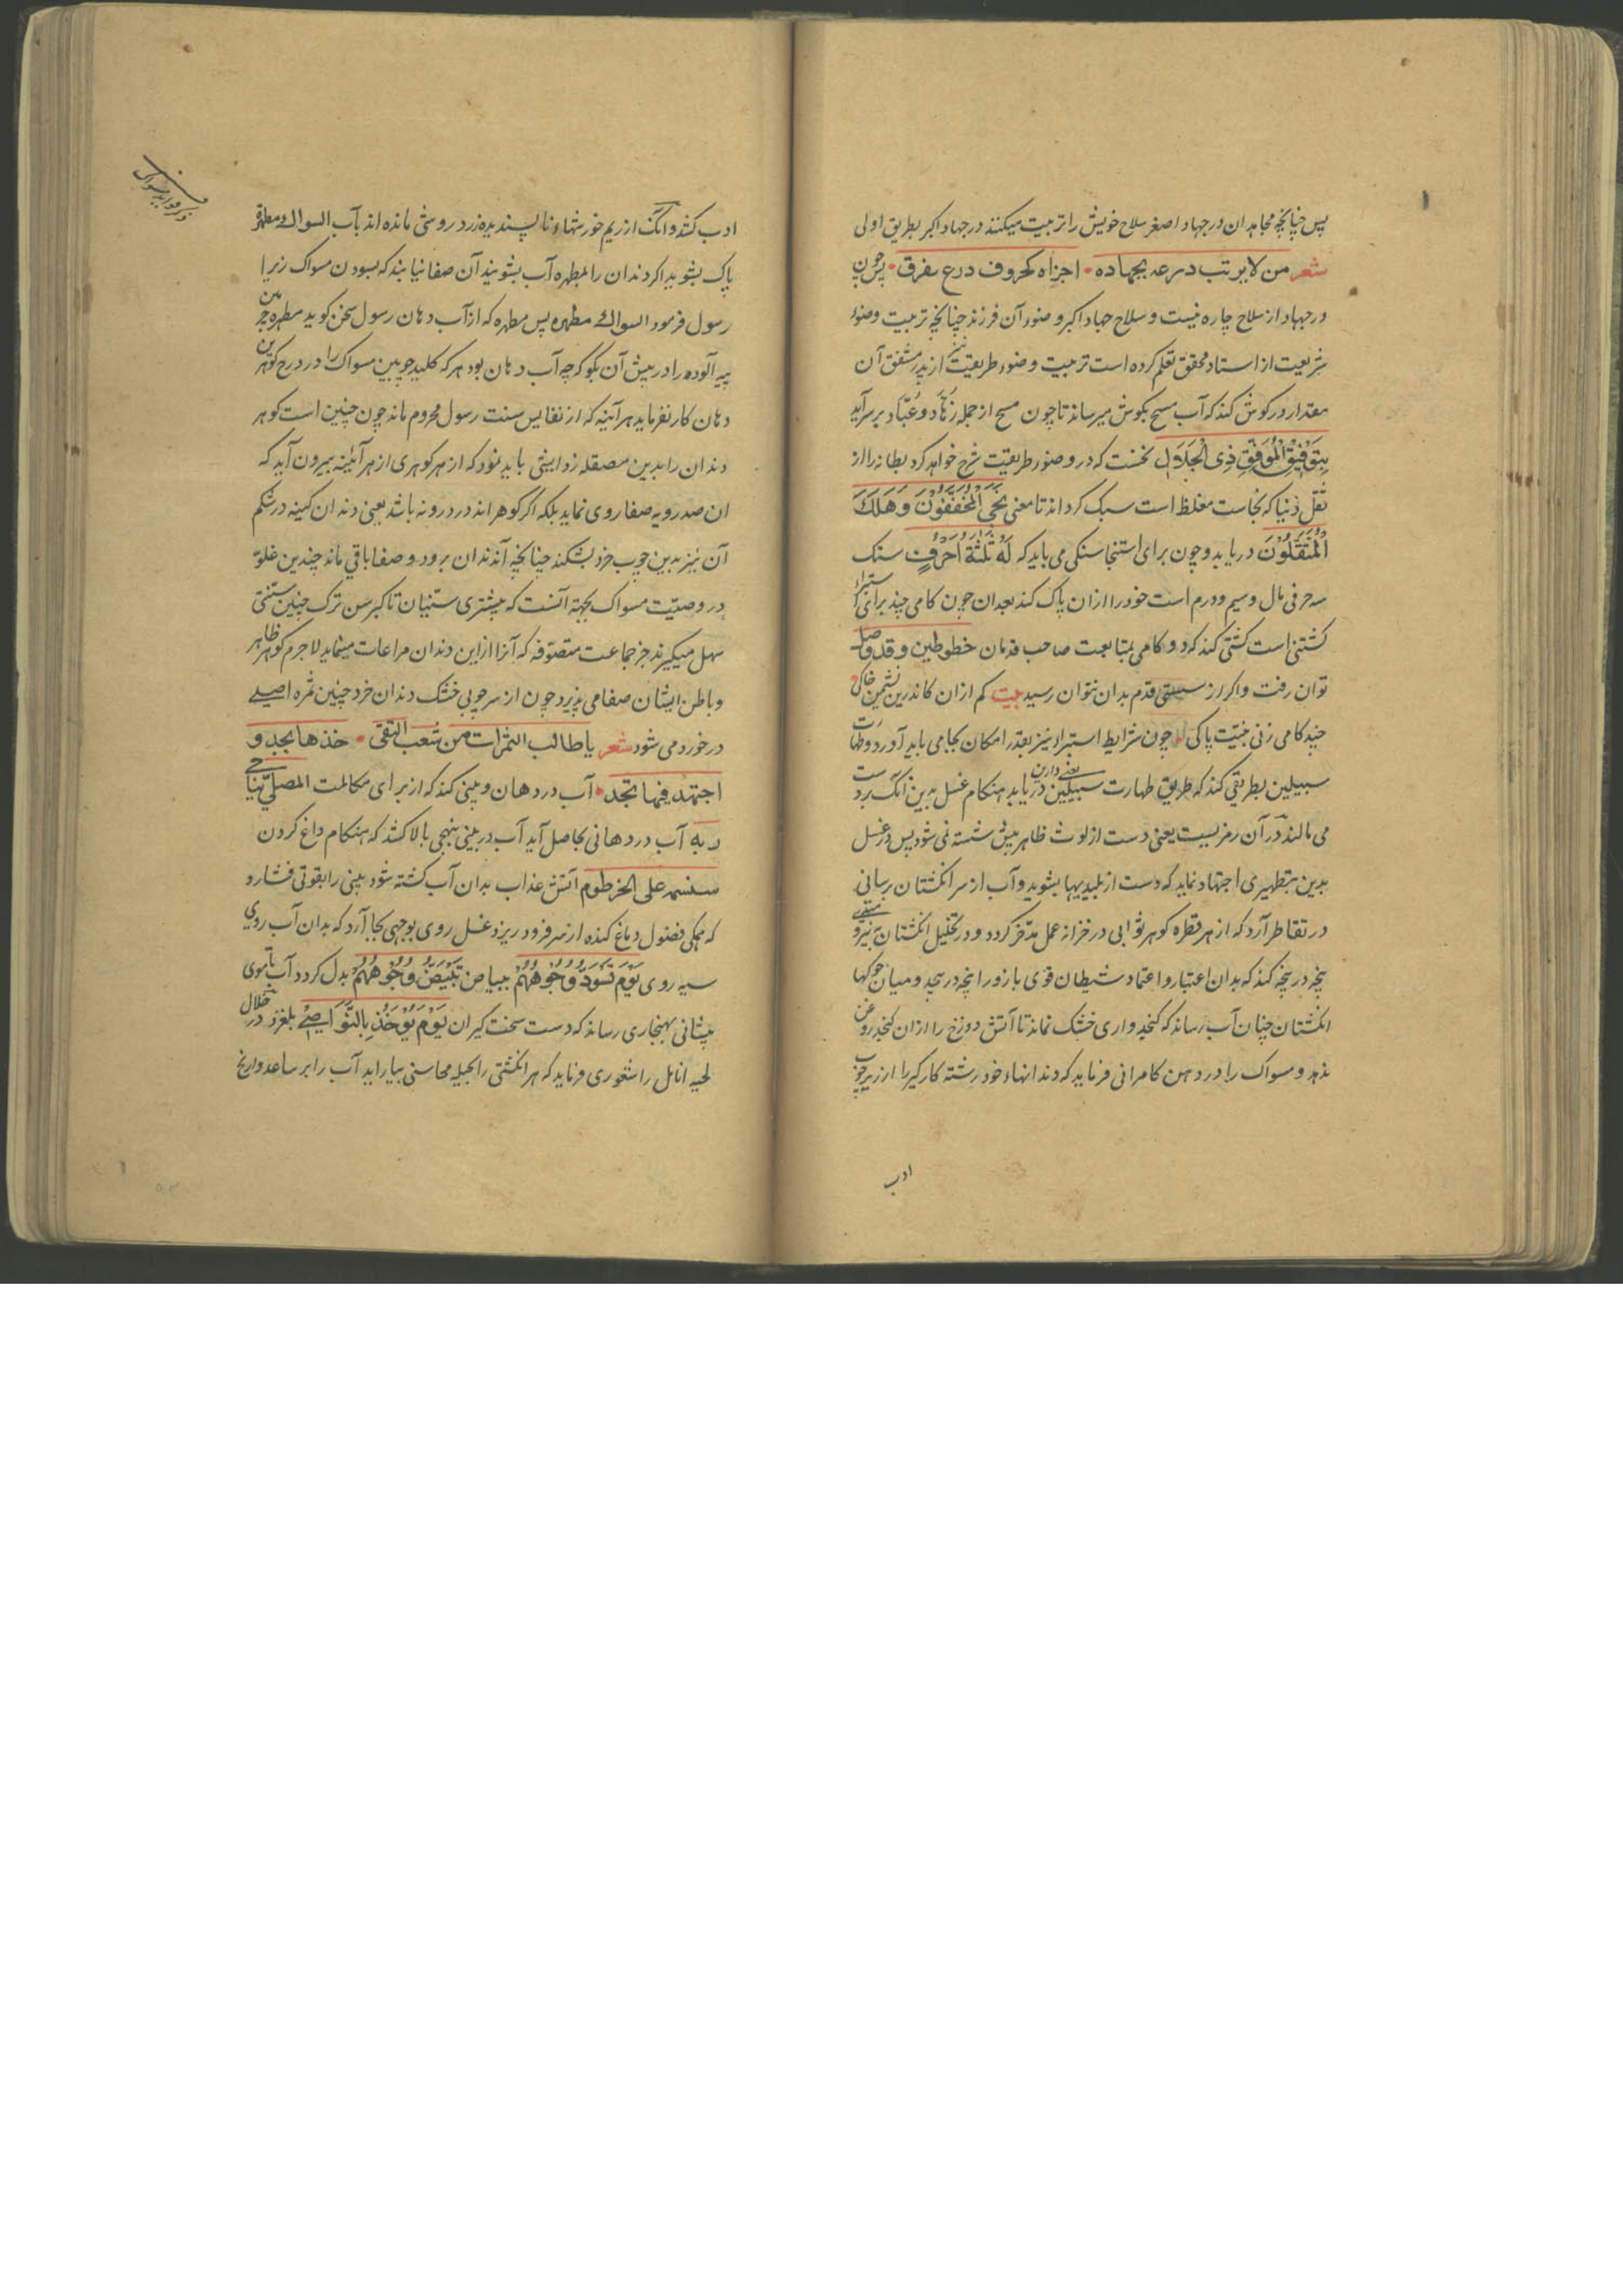 پس چنانچه مجاهدان در جهاد اصغر سلاح خویش را تربیت میکنند در جهاد اکبر بطریق اولی
شعر من لا یرتب درعه بجهاده اجزاه کحروف درع بفرق پس چون
در جهاد از سلاح چاره نیست و سلاح جهاد اکبر وضوء آن فرزند چنانچه تربیت وضوء
شریعت از استاد محقق تعلم کرده است تربیت وضوء طریقت نیز از پدر مشفق آن
مقدار در گوش کند که آب مسح بگوش میرساند تا چون مسح از جمله زهاد و عباد بر سر آید
بتوفیق الموفق ذی الجلال نخست که در وضوء طریقت شرح خواهد کرد بطانه را از
ثقل دنیا که نجاست مغلظ است سبک گرداند تا معنی نجی المخففون و هلک
المثقلون دریابد و چون برای استنجا سنگی می باید که له ثلثة احرف سنک
سه حرفی مال و سیم و درم است خود را ازان پاک کند بعد ان چون کامی چند برای استبراء
کشتنی است کشتی کند کرد و کامی بمتابعت صاحب قدمان خطوطین و قد وصل
توان رفت و اکر از سستی قدم بدان نتوان رسید بیت کم ازان کاندرین نشیمن خاک
چند کامی زنی بنیت پاکی چون شرایط استبراء نیز بقدر امکان بجا می باید آورد و طهارت
سبیلین بطریقی کند که طریق طهارت سبیلین یعنی دارین دریابد هنکام غسل یدین آنک بر دست
می مالند در آن رمزیست یعنی دست از لوث ظاهر بیش شسته نمی شود پس در غسل
یدین بتطهیری اجتهاد نماید که دست از پلیدیها بشوید و آب از سر انکشتان برسانی
در تقاطر آرد که از هر قطره کوهر ثوابی در خزانه عمل مدخر کردد و در تخلیل انکشتان به نیروی
پنجه در پنجه کند که بدان اعتبار و اعتماد شیطان قوی بازو را پنجه در پیچد و میان جوکها
انکشتان چنان آب رساند که کنجد واری خشک نماند تا آتش دوزخ را ازان کنجد روغن
ندهد و مسواک را در دهن کامرانی فرماید که دندانهاء خود رشته کار کیر را از زیر چوب
ادب
ادب کشد و آنک از ریم خورشهاء ناپسندیده زرد روئی مانده اند بآب السواک مطهرة
پاک بشوید اکر دندان را بمطهره آب بشویند آن صفا نیابند که بسودن مسواک زیرا
رسول فرمود السواک مطهره پس مطهره که از آب دهان رسول سخن کوید مطهره چرمین
پیه آلوده را در پیش آن بکو که چه آب دهان بود هر که کلید چوبین مسواک را در درج کوهرین
دهان کار نفرماید هر آینه که از نفایس سنت رسول محروم ماند چون چنین است کوهر
دندان را بدین مصقله زدایشی باید نمود که از هر کوهری از هر آئینه بیرون آید که
ان صد رویه صفا روی نماید بلکه اکر کوهر اند در درونه باشد یعنی دندان کینه در شکم
آن نیز بدین چوب خرد بشکند چنانچه آن دندان برود و صفا باقی ماند چندین غلو
در وصیت مسواک بجهة آنست که بیشتری سنیان تا کبر سن ترک چنین سنتی
سهل میکیرند جز جماعت متصوفه که آنرا از این دندان مراعات مینماید لا جرم کوهر ظاهر
و باطن ایشان صفا می پذیرد چون از سر چوبی خشک دندان خرد چنین ثمره اصیلی
در خورد می شود شعر یا طالب الثمرات من شعب التقی خذها بجد و
اجتهد فیها تجد آب در دهان و بینی کند که از برای مکالمت المصلی یناجی
ربه آب در دهانی بحاصل آید آب در بینی بنهجی بالا کشد که هنکام داغ کردن
سنسمه علی الخرطوم آتش عذاب بدان آب کشته شود بینی را بقوتی فشارد
که همکی فضول دماغ کنده از سر فرود ریزد غسل روی بوجهی بجا آرد که بدان آب روی
سیه روی یوم تسود وجوههم ببیاض تبیض وجوههم بدل کردد آب تا موی
پیشانی بهنجاری رساند که دست سخت کیران یوم یؤخذ بالنواصی بلغزد در خلال
لحیه انامل را شعوری فرماید که هر انکشتی را بحیله محاسنی بیاراید آب را بر ساعد وارنج